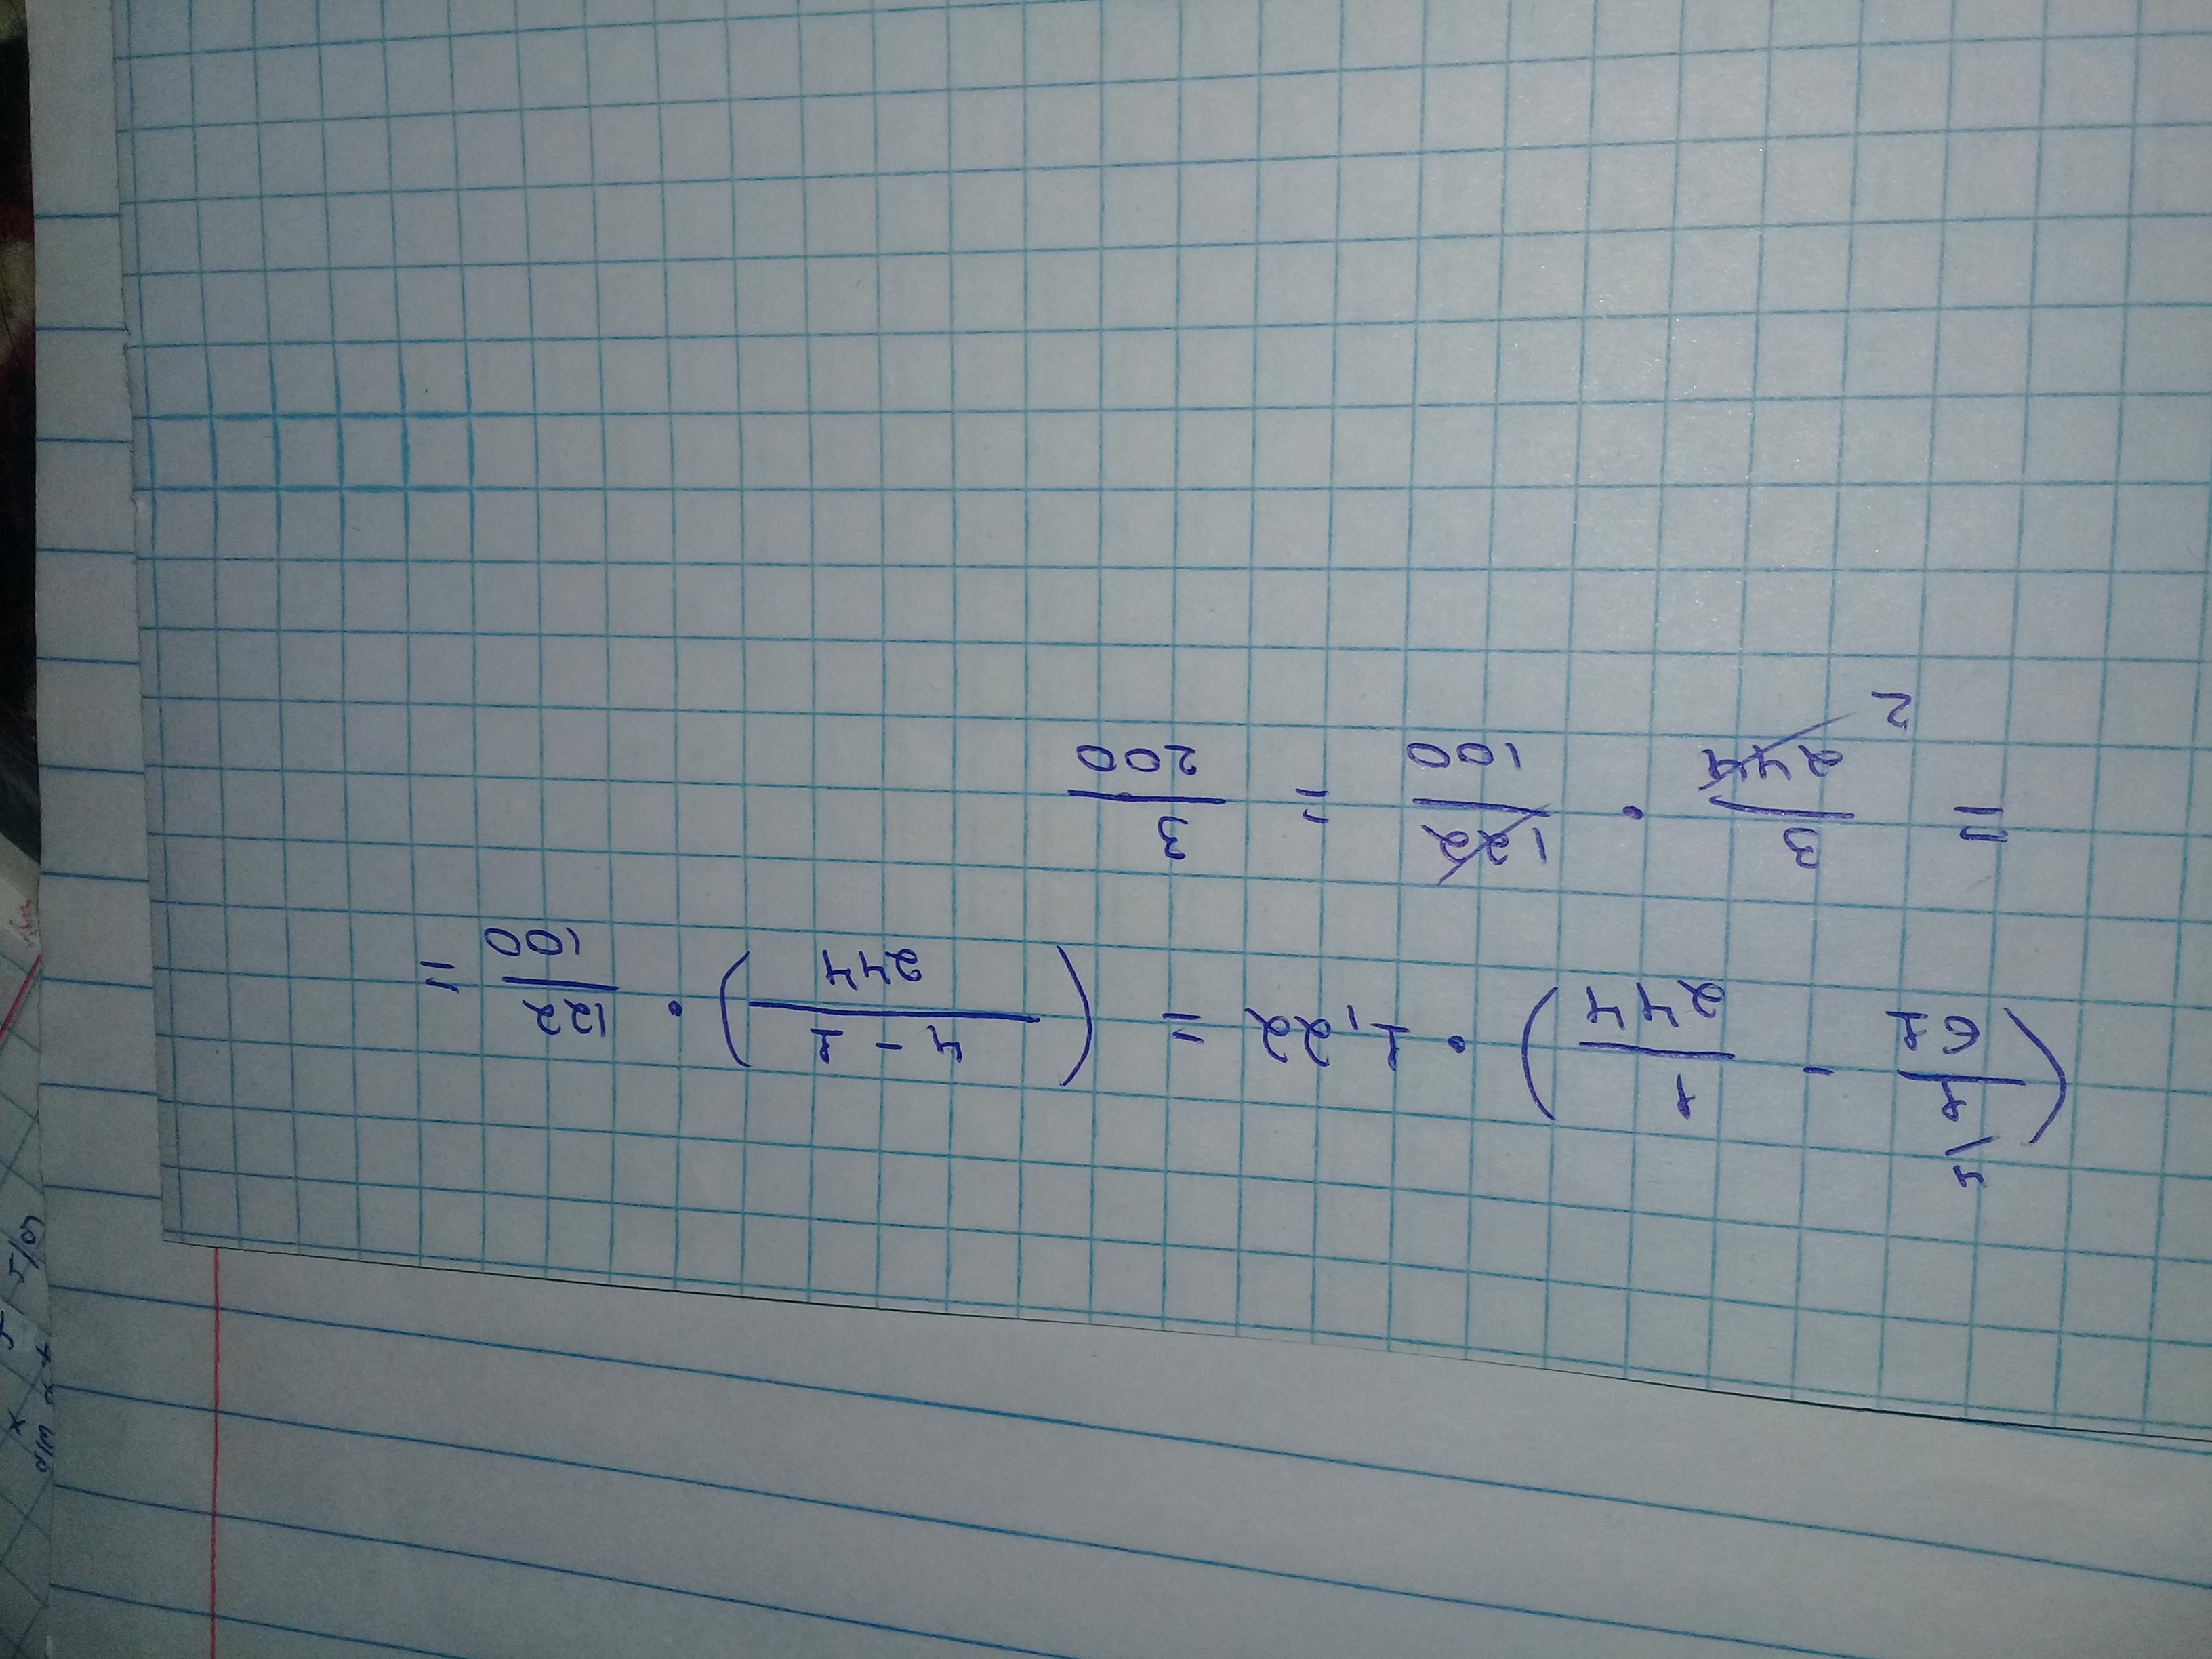 4\
( 1/61 - 1/244 ) · 1,22 = ( 4-1/244 ) · 122/100 =
= 3/244 · 122/100 = 3/200
2